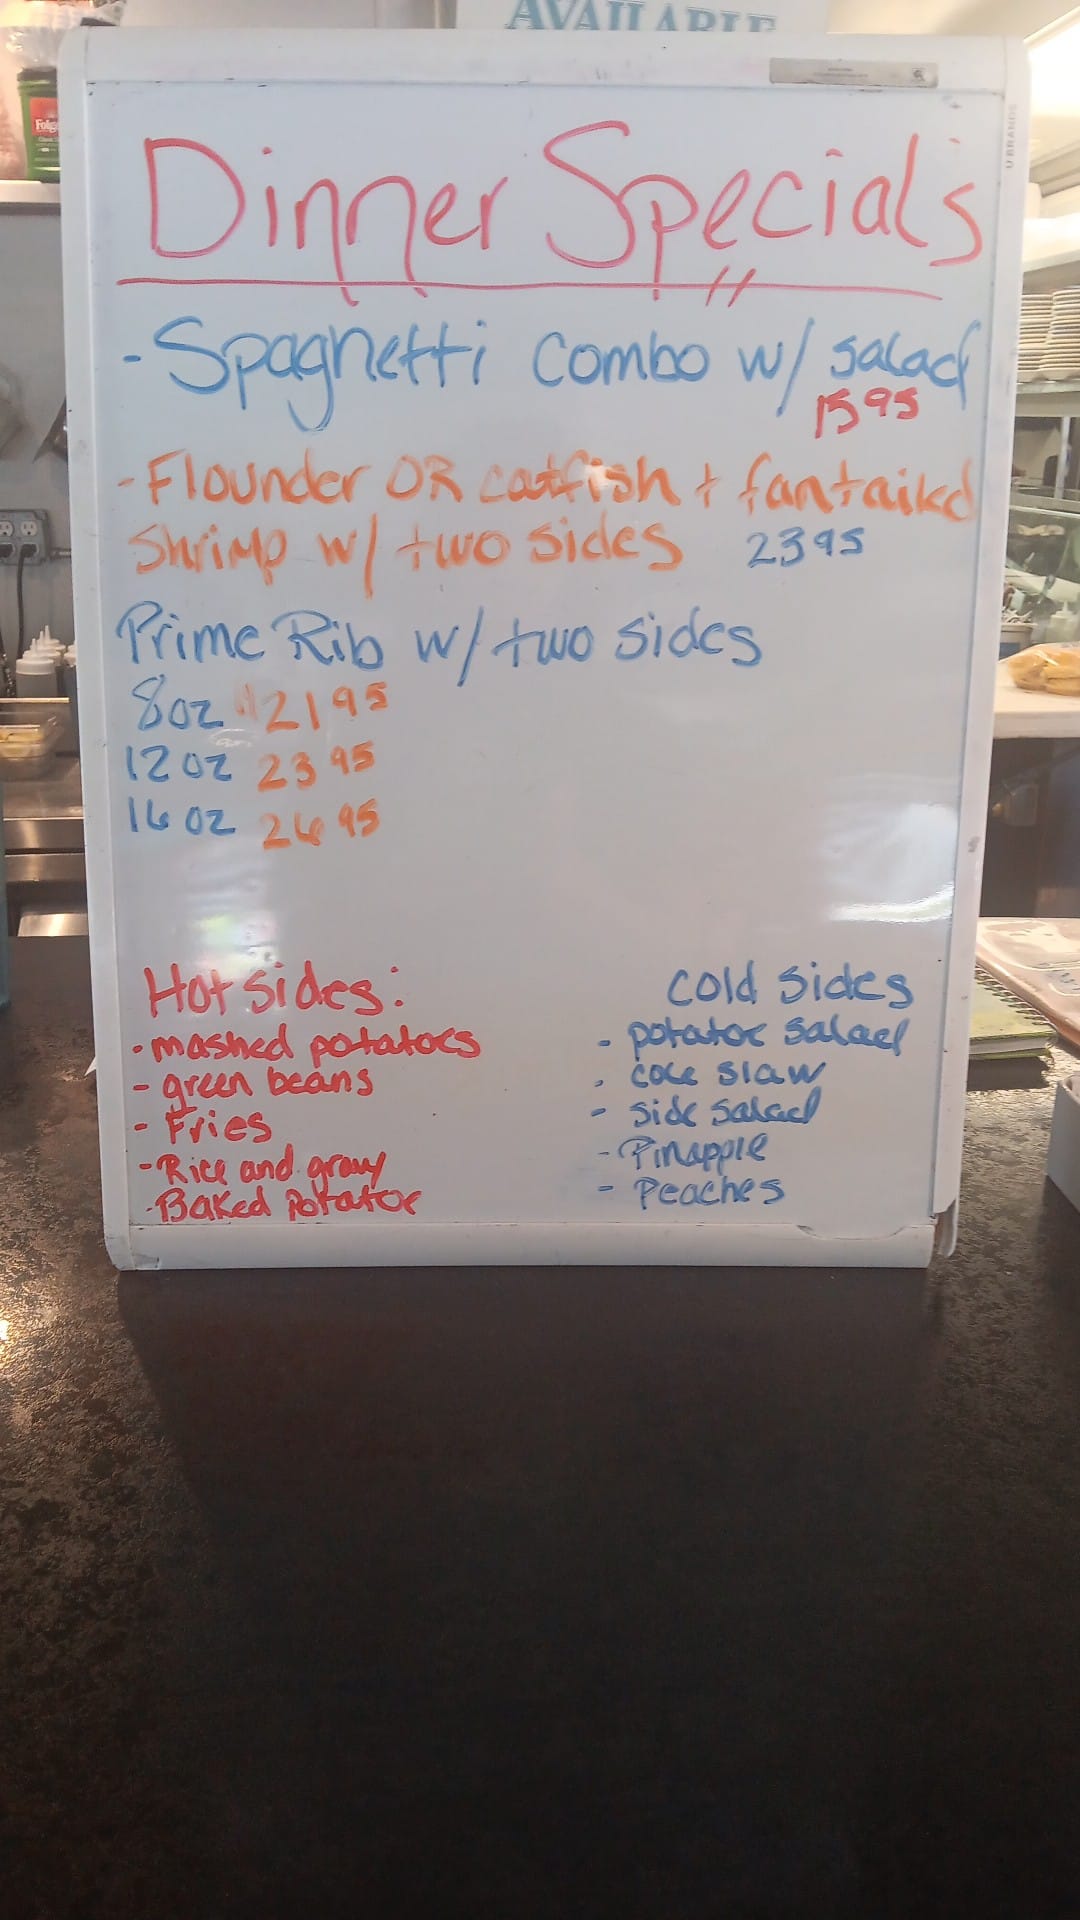 AVAILABLE
Folg
U BRANDS
Dinner Special's
- Spaghetti combo w/ salad
15 95
- Flounder OR catfish + fantailed
Shrimp w/ two sides 23 95
Prime Rib w/ two sides
8oz 21 95
12 oz 23 95
16 oz 26 95
Hot sides:
- mashed potatoes
- green beans
- Fries
- Rice and gravy
- Baked Potatoe
cold sides
- potatoe salad
- cole slaw
- side salad
- Pinapple
- Peaches